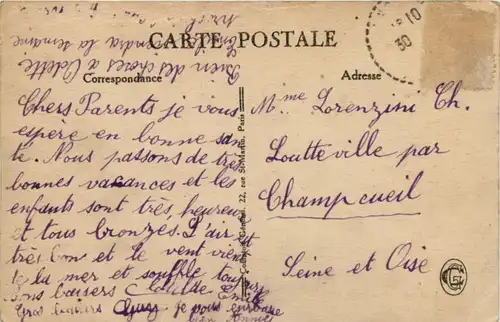 CARTE POSTALE
Correspondance
Adresse
Chers Parents je vous
espere en bonne san
te. Nous passons de très
bonnes vacances et les
enfants sont très heureux
et tous bronzes. L'air est
très bon et le vent vient
de la mer et souffle
bons baisers Clotilde
Gros baisers je vous embrasse
Bien des choses a Odette
viendra la semaine
22, rue St-Martin, Paris
Mme Lorenzini Ch.
Loutteville par
Champcueil
Seine et Oise
10
30